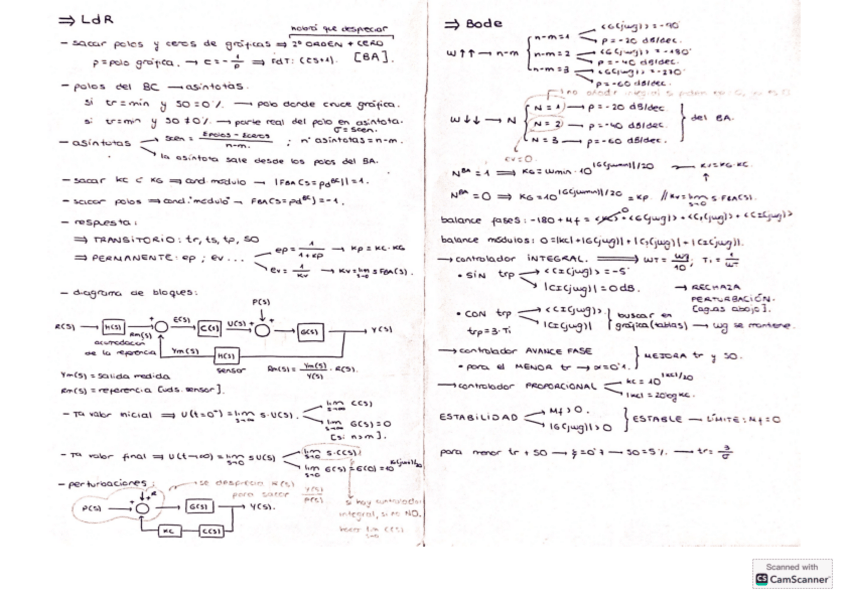 ⇒ LdR
habrá que despreciar
- sacar polos y ceros de gráficas ⇒ 2º ORDEN + CERO
p = polo gráfica. → c = -1/p ⇒ FdT: (CS+1). [BA]
- polos del BC → asíntotas.
si tr = min y SO = 0% → polo donde cruce gráfica.
si tr = min y SO ≠ 0% → parte real del polo en asíntota.
σ = scen.
- asíntotas → scen = Σpolos - Σceros / n-m. ; nº asíntotas = n-m.
la asíntota sale desde los polos del BA.
- sacar kc o KG ⇒ cond. módulo → |FBA(s=pd^BC)| = 1.
- sacar polos ⇒ cond. "módulo" → FBA(s=pd^BC) = -1.
- respuesta:
⇒ TRANSITORIO: tr, ts, tp, SO
⇒ PERMANENTE: ep ; ev ... → ep = 1/(1+kp) → Kp = KC·KG
ev = 1/Kv → Kv = lim s→0 s FBA(s).
- diagrama de bloques:
P(s)
R(s) → H(s) → Rm(s) → E(s) → C(s) → U(s) → G(s) → Y(s)
acumodación de la referencia
Ym(s) H(s)
sensor
Rm(s) = Ym(s)/Y(s) · R(s).
Ym(s) = salida medida
Rm(s) = referencia [uds. sensor].
- Ta valor inicial ⇒ U(t=0⁺) = lim s→∞ s·U(s). → lim s→∞ C(s)
lim s→∞ G(s) = 0
[si n>m].
- Ta valor final ⇒ U(t→∞) = lim s→0 sU(s) → lim s→0 s·C(s)
lim s→0 G(s) = G(0) = 10^|G(jωg)|/20
- perturbaciones: → se desprecia R(s) para sacar Y(s)/P(s)
si hay controlador integral, si no NO.
hacer lim s→0 C(s)
P(s) → G(s) → Y(s).
KC C(s)
⇒ Bode
W↑↑ → n-m
n-m=1 → <G(jωg) = -90
p = -20 dB/dec.
n-m=2 → <G(jωg) = -180°
p = -40 dB/dec.
n-m=3 → <G(jωg) = -270
p = -60 dB/dec.
W↓↓ → N
N=1 → p = -20 dB/dec
N=2 → p = -40 dB/dec.
N=3 → p = -60 dB/dec.
del BA.
ev=0.
N^BA = 1 ⇒ KG = ωmin · 10^|G(jωmin)|/20 → Kv = KG·KC.
N^BA = 0 ⇒ KG = 10^|G(jωmin)|/20 = Kp. // Kv = lim s→0 s FBA(s).
balance fases: -180 + Mf = <kc + <G(jωg) + <C₁(jωg) + <C₂(jωg)
balance módulos: 0 = |kc| + |G(jωg)| + |C₁(jωg)| + |C₂(jωg)|.
→ controlador INTEGRAL. ⇒ ωI = ωg/10 ; Ti = 1/ωI
• SIN trp → <CI(jωg) = -5°
|CI(jωg)| = 0 dB.
→ RECHAZA PERTURBACIÓN.
[aguas abajo].
• CON trp → <CI(jωg).
trp = 3·Ti
|CI(jωg)|
buscar en gráfica (tablas) → ωg se mantiene.
→ controlador AVANCE FASE
• para el MENOR tr → α = 0'1.
MEJORA tr y SO.
→ controlador PROPORCIONAL → kc = 10^|kc|/20
|kc| = 20log kc.
ESTABILIDAD → Mf > 0.
|G(jωg)| > 0
ESTABLE → LÍMITE: Mf = 0
para menor tr + SO → ξ = 0'7 → SO = 5% → tr = 3/σ
Scanned with
CS CamScanner